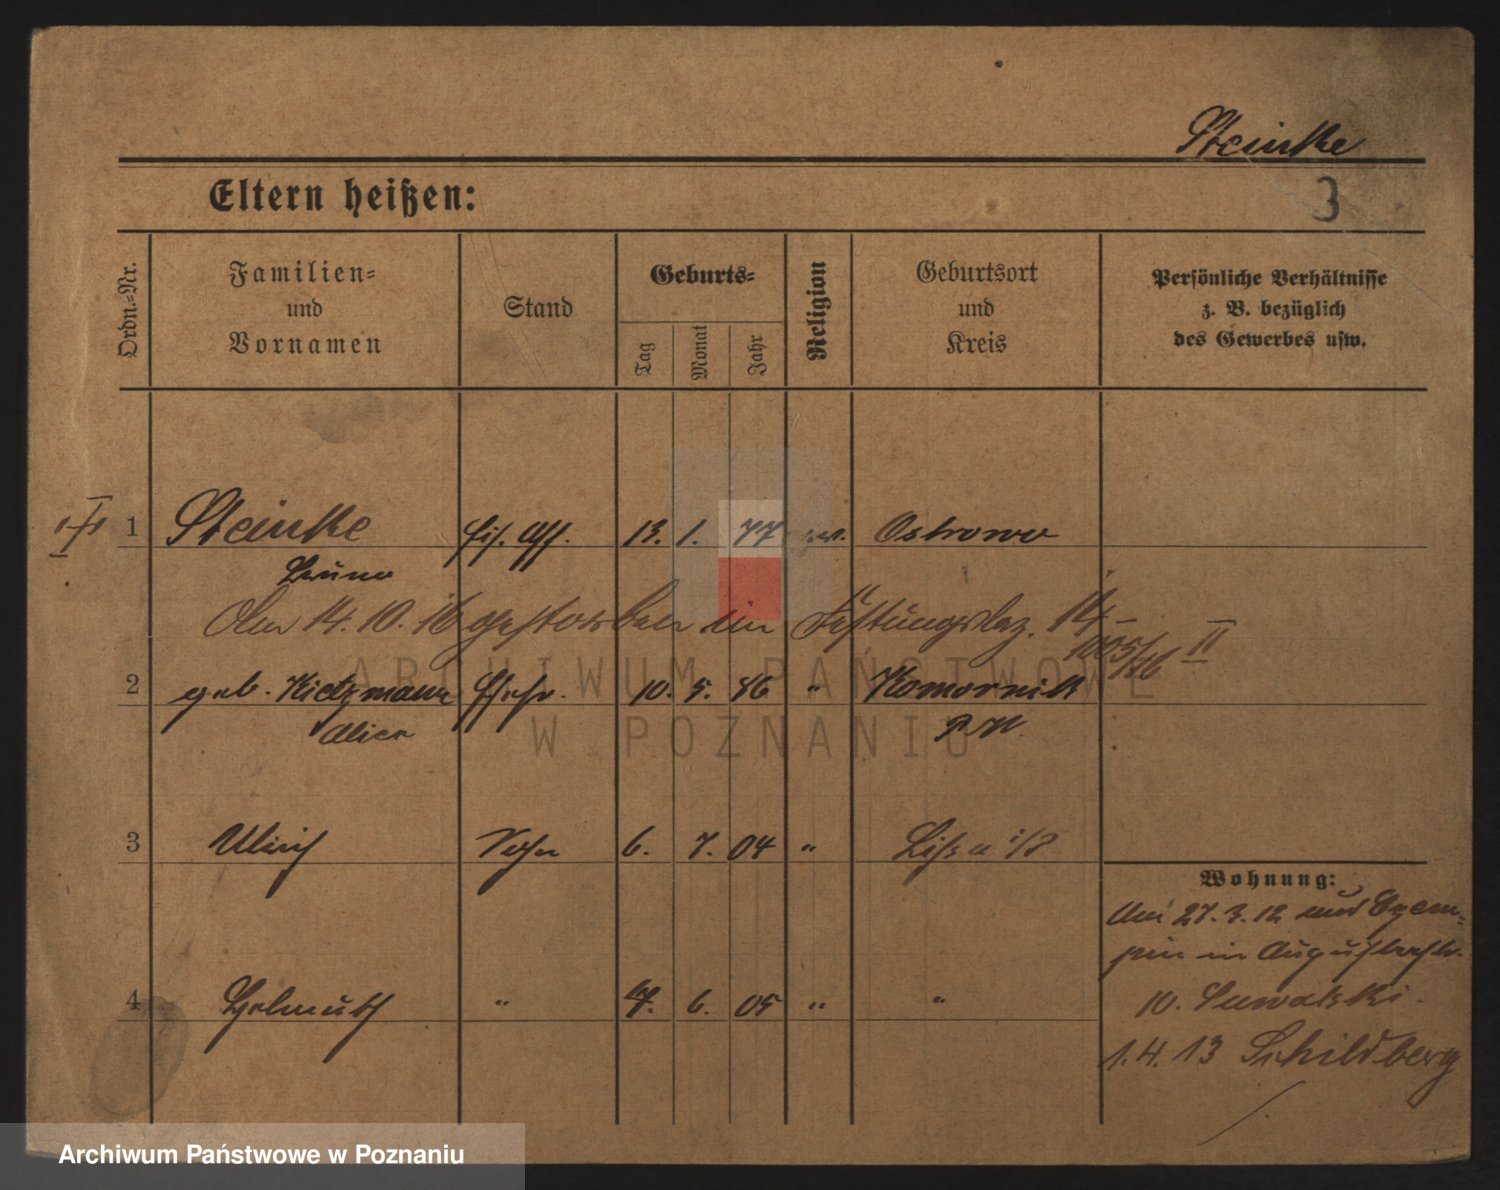 Steinke
3
Eltern heißen:
Ordn.=Nr.
Familien= und Vornamen
Stand
Geburts=
Tag
Monat
Jahr
Religion
Geburtsort und Kreis
Persönliche Verhältnisse z. B. bezüglich des Gewerbes usw.
I
1 Steinke Eis. Ass. 13. 1. 77 ev. Ostrowo
Bruno
Am 14. 10. 16 gestorben im Festungslaz. 14
1005/16 II
2 geb. Kietzmann Ehefr. 10. 5. 86 " Komornik
Alice P. W.
3 Ulrich Sohn 6. 7. 04 " Lissa i/P
Wohnung:
Am 27. 3. 12 aus
in Augustastr.
4 Helmuth " 4. 6. 05 " "
10. Suwalski.
1. 4. 13 Schildberg
ARCHIWUM PAŃSTWOWE
W POZNANIU
Archiwum Państwowe w Poznaniu